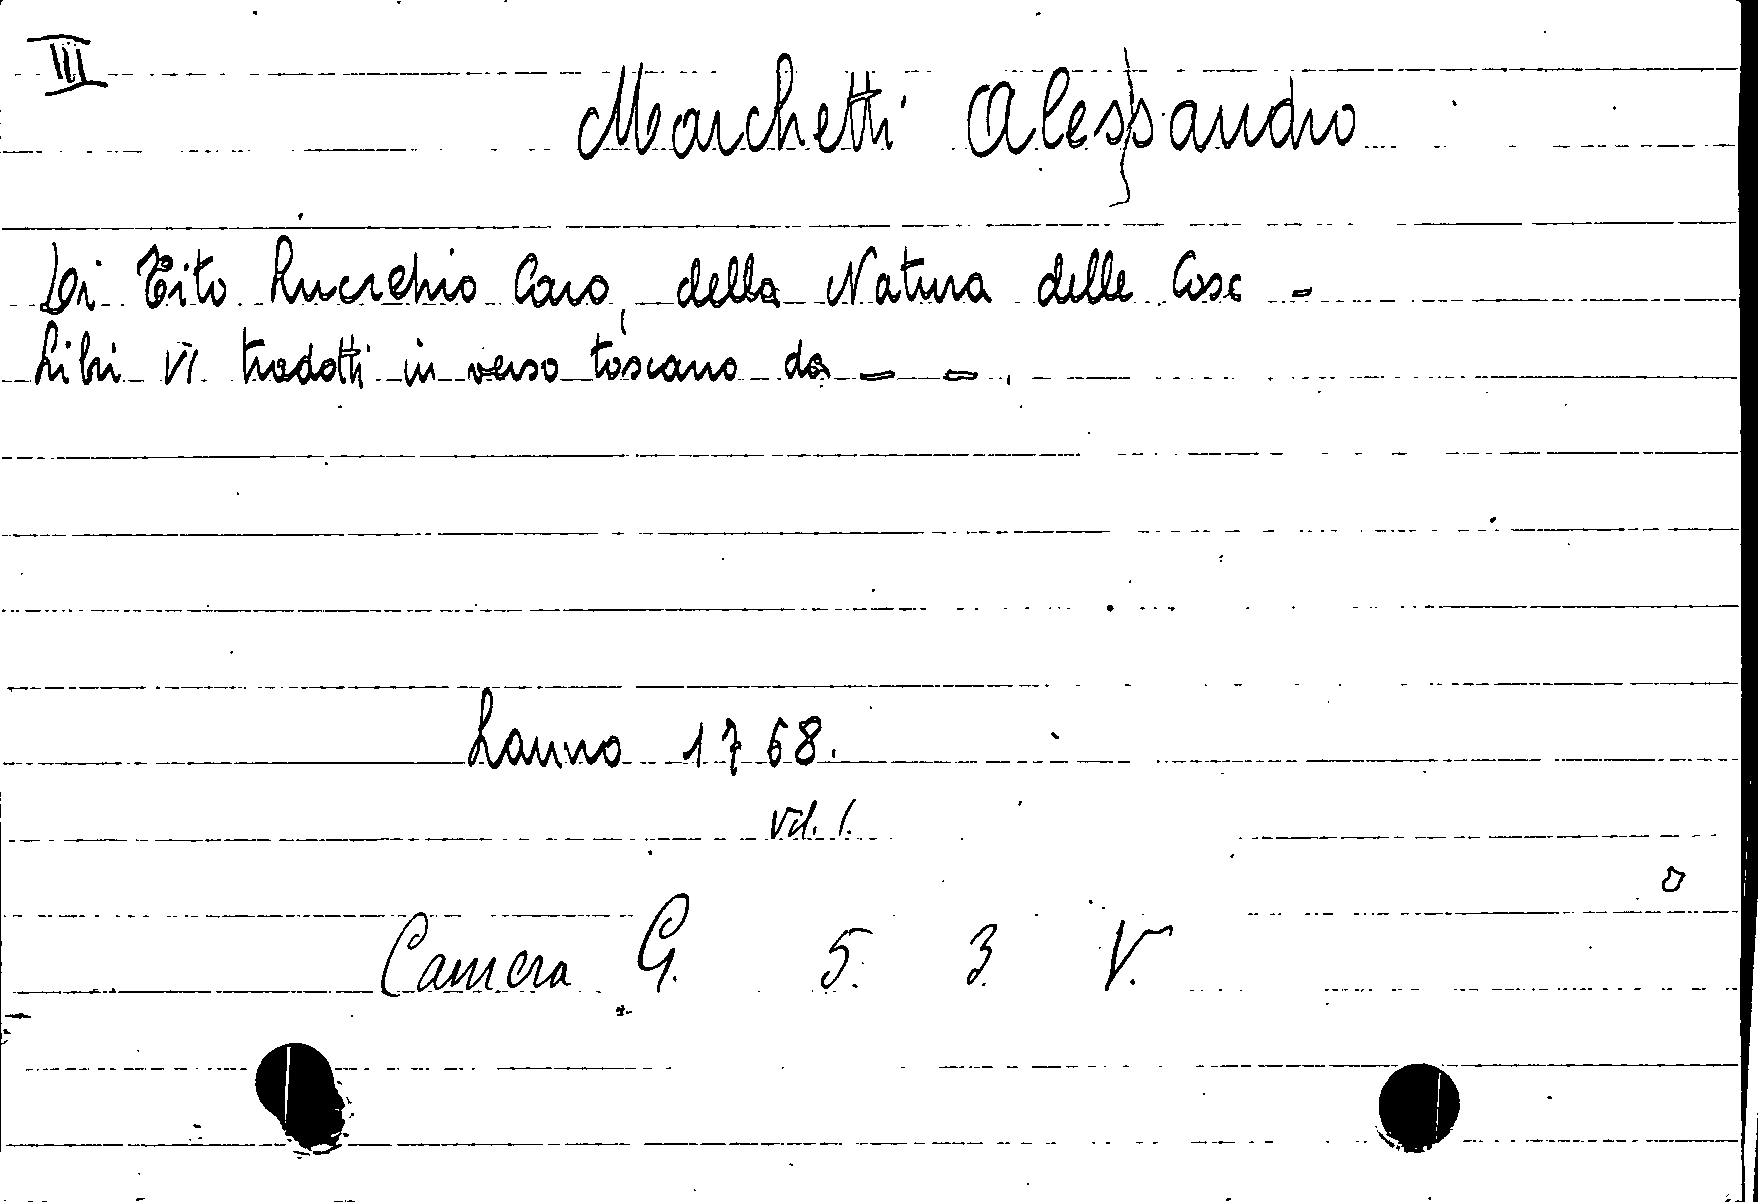 III
Marchetti Alessandro
Di Tito Lucrehio Caro, della Natura delle Cose -
Libri VI tradotti in verso toscano da - - .
Lanno 1768.
Vol. 1.
Camera G. 5. 3. V.